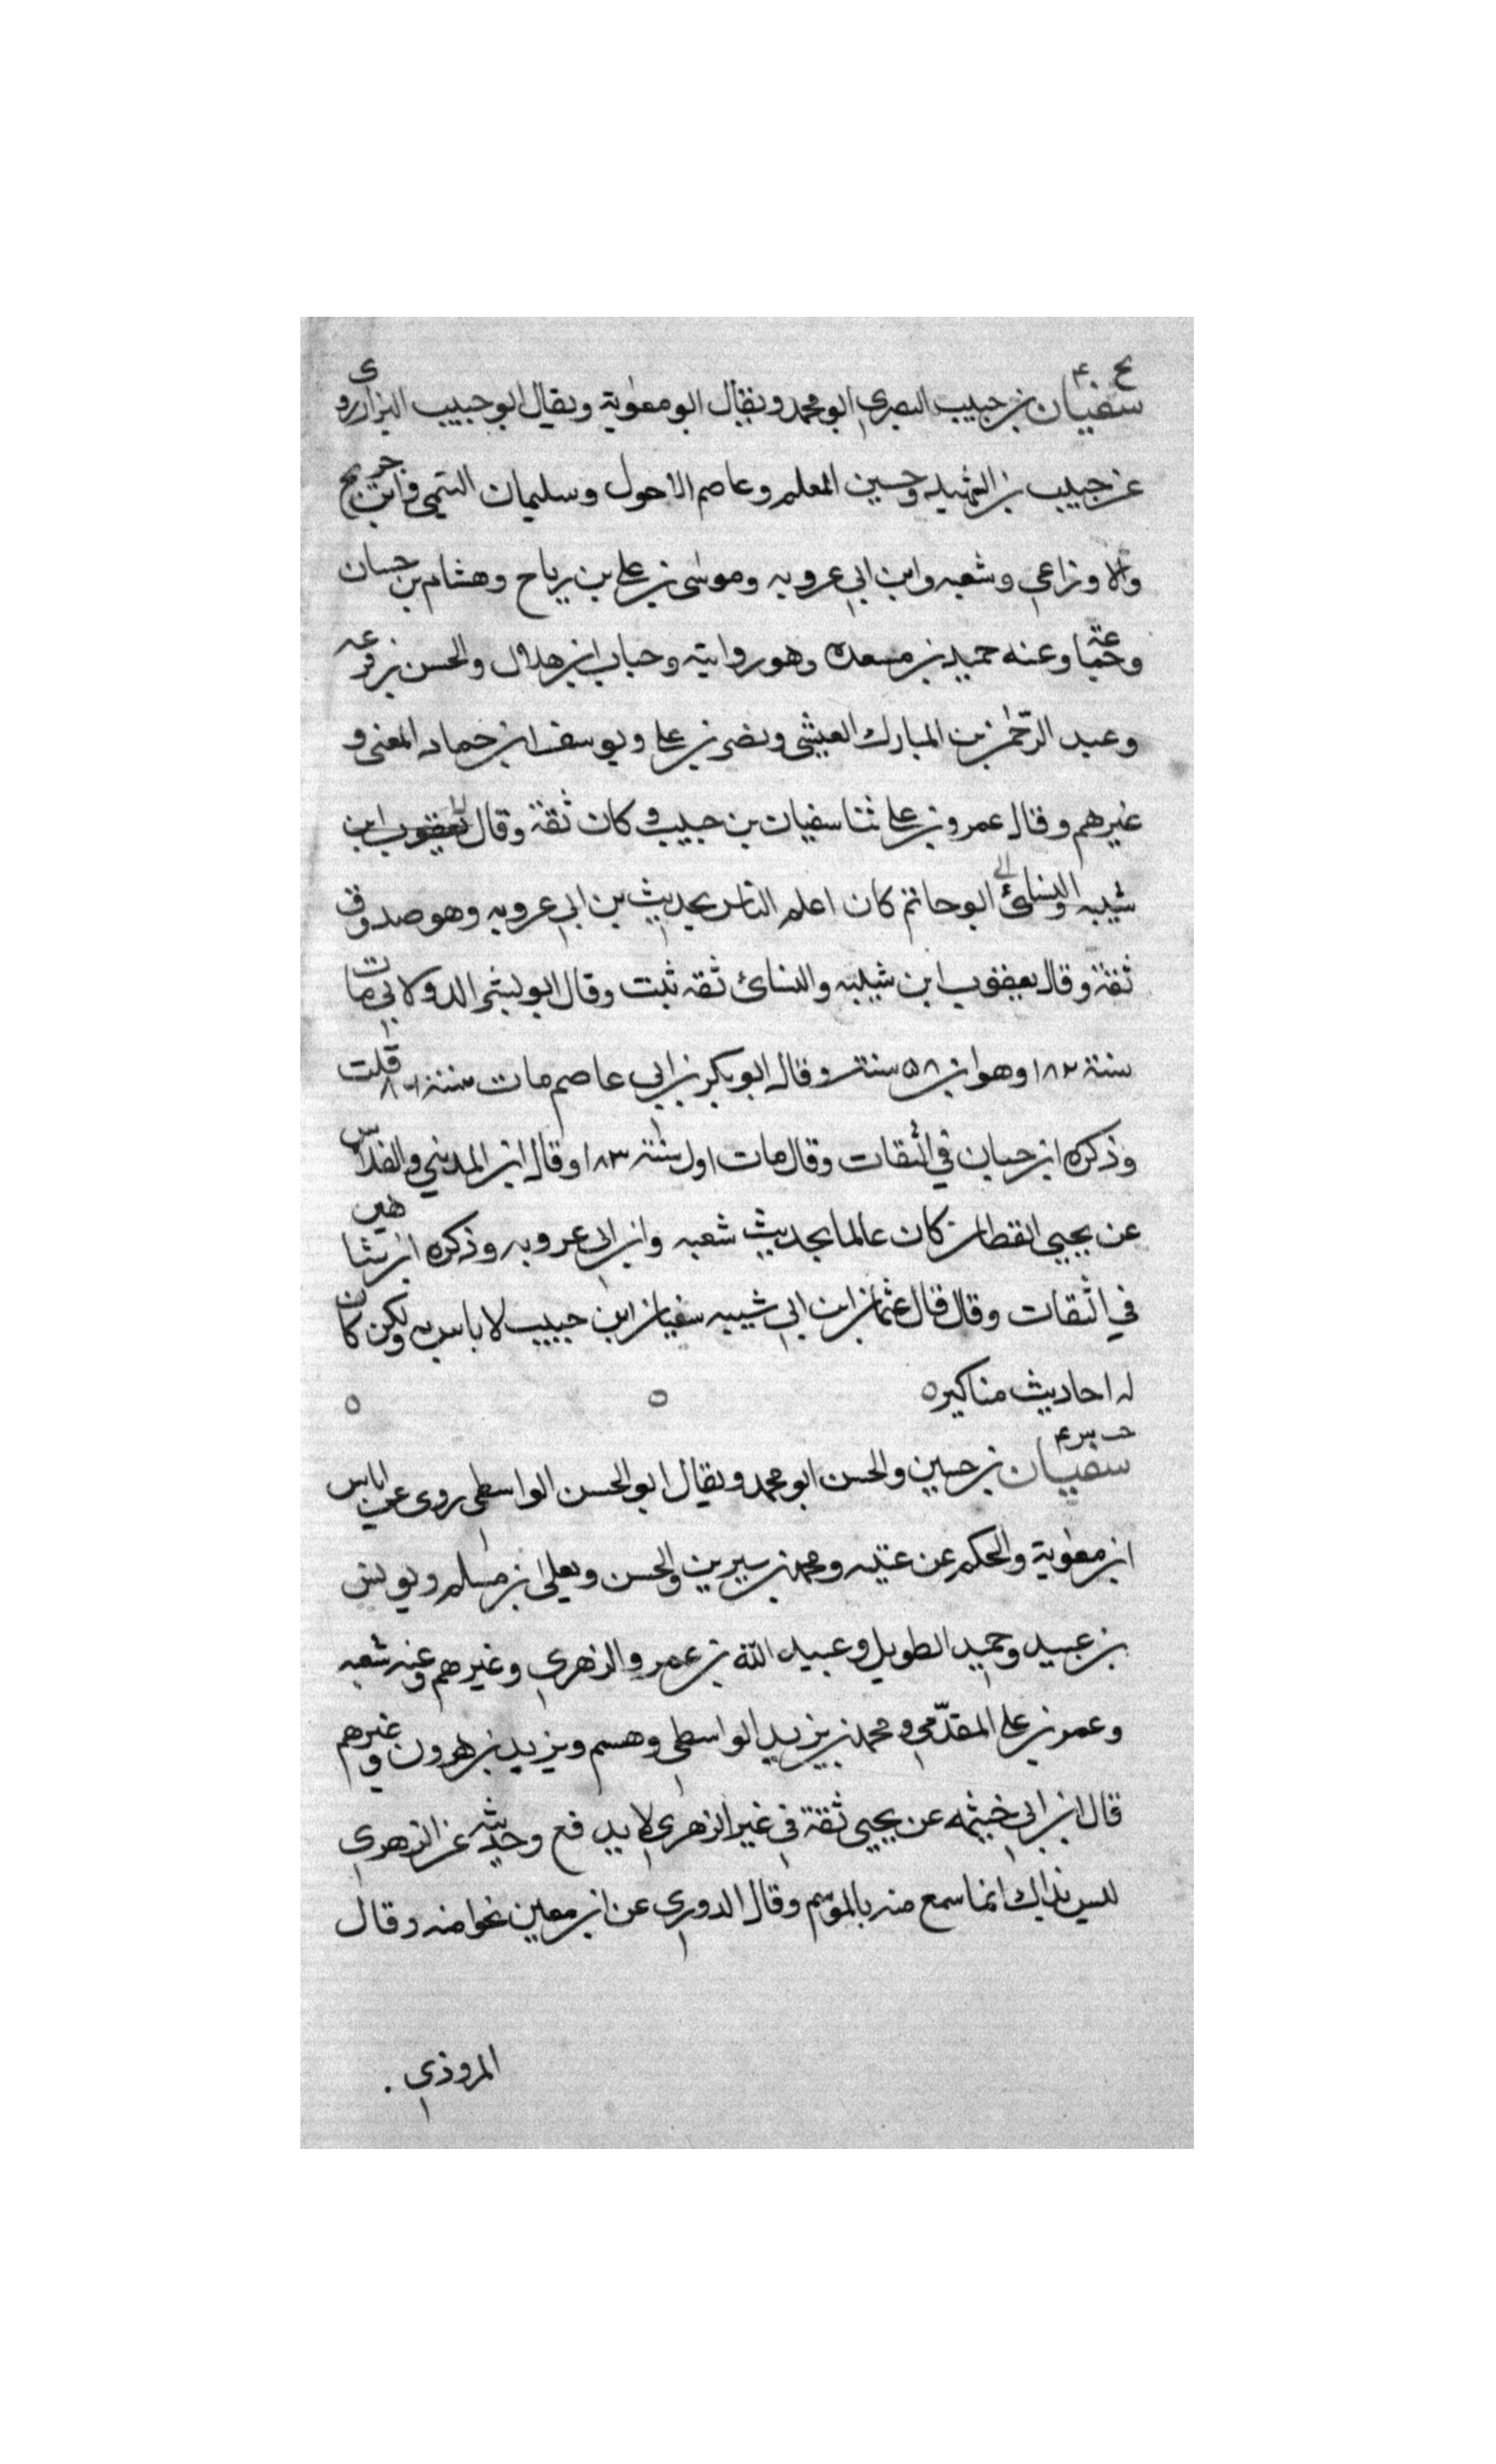 ع ۴
سفيان بن حبيب البصري ابو محمد ويقال ابو معوية ويقال ابو حبيب البزار روى
عن حبيب بن الشهيد وحسين المعلم وعاصم الاحول وسليمان التيمي وابن جريج
والاوزاعي وشعبه وابن ابي عروبه وموسى بن علي بن رباح وهشام بن حسان
وجماعة وعنه حميد بن مسعده وهو روايته وحبان ابن هلال والحسن بن قزعه
وعبد الرحمن بن المبارك العيشي ونصر بن علي ويوسف ابن حماد المعنى و
غيرهم وقال عمرو بن علي ثنا سفيان بن حبيب وكان ثقة وقال يعقوب ابن
شيبه والنسائي ابو حاتم كان اعلم الناس بحديث بن ابي عروبه وهو صدوق
ثقة وقال يعقوب ابن شيبه والنسائ ثقه ثبت وقال ابو بشر الدولابي مات
سنة ١٨٢ وهو ابن ٥٨ سنة وقال ابو بكر بن ابي عاصم مات سنة ١٨٦ قلت
وذكره ابن حبان في الثقات وقال مات اول سنة ١٨٣ وقال ابن المديني والفلاس
عن يحيى القطان كان عالما بحديث شعبه وابن ابي عروبه وذكره ابن شاهين
في الثقات وقال قال عثمان ابن ابي شيبه سفيان ابن حبيب لا باس به ولكن كان
له احاديث مناكير ه ه ه
سفيان بن حسين والحسن ابو محمد ويقال ابو الحسن الواسطي روى عن اياس
ابن معوية والحكم عن عتيبه ومحمد بن سيرين والحسن ويعلى ابن مسلم ويونس
بن عبيد وحميد الطويل وعبيد الله بن عمر والزهري وغيرهم وعنه شعبه
وعمر بن علي المقدّمي ومحمد بن يزيد الواسطي وهسم ويزيد بن هرون وغيرهم
قال ابن ابي خيثمه عن يحيى ثقة في غير الزهري لا يدفع وحديثه عن الزهري
ليس بذاك انما سمع منه بالموسم وقال الدوري عن ابن معين نحوا منه وقال
المروذي .